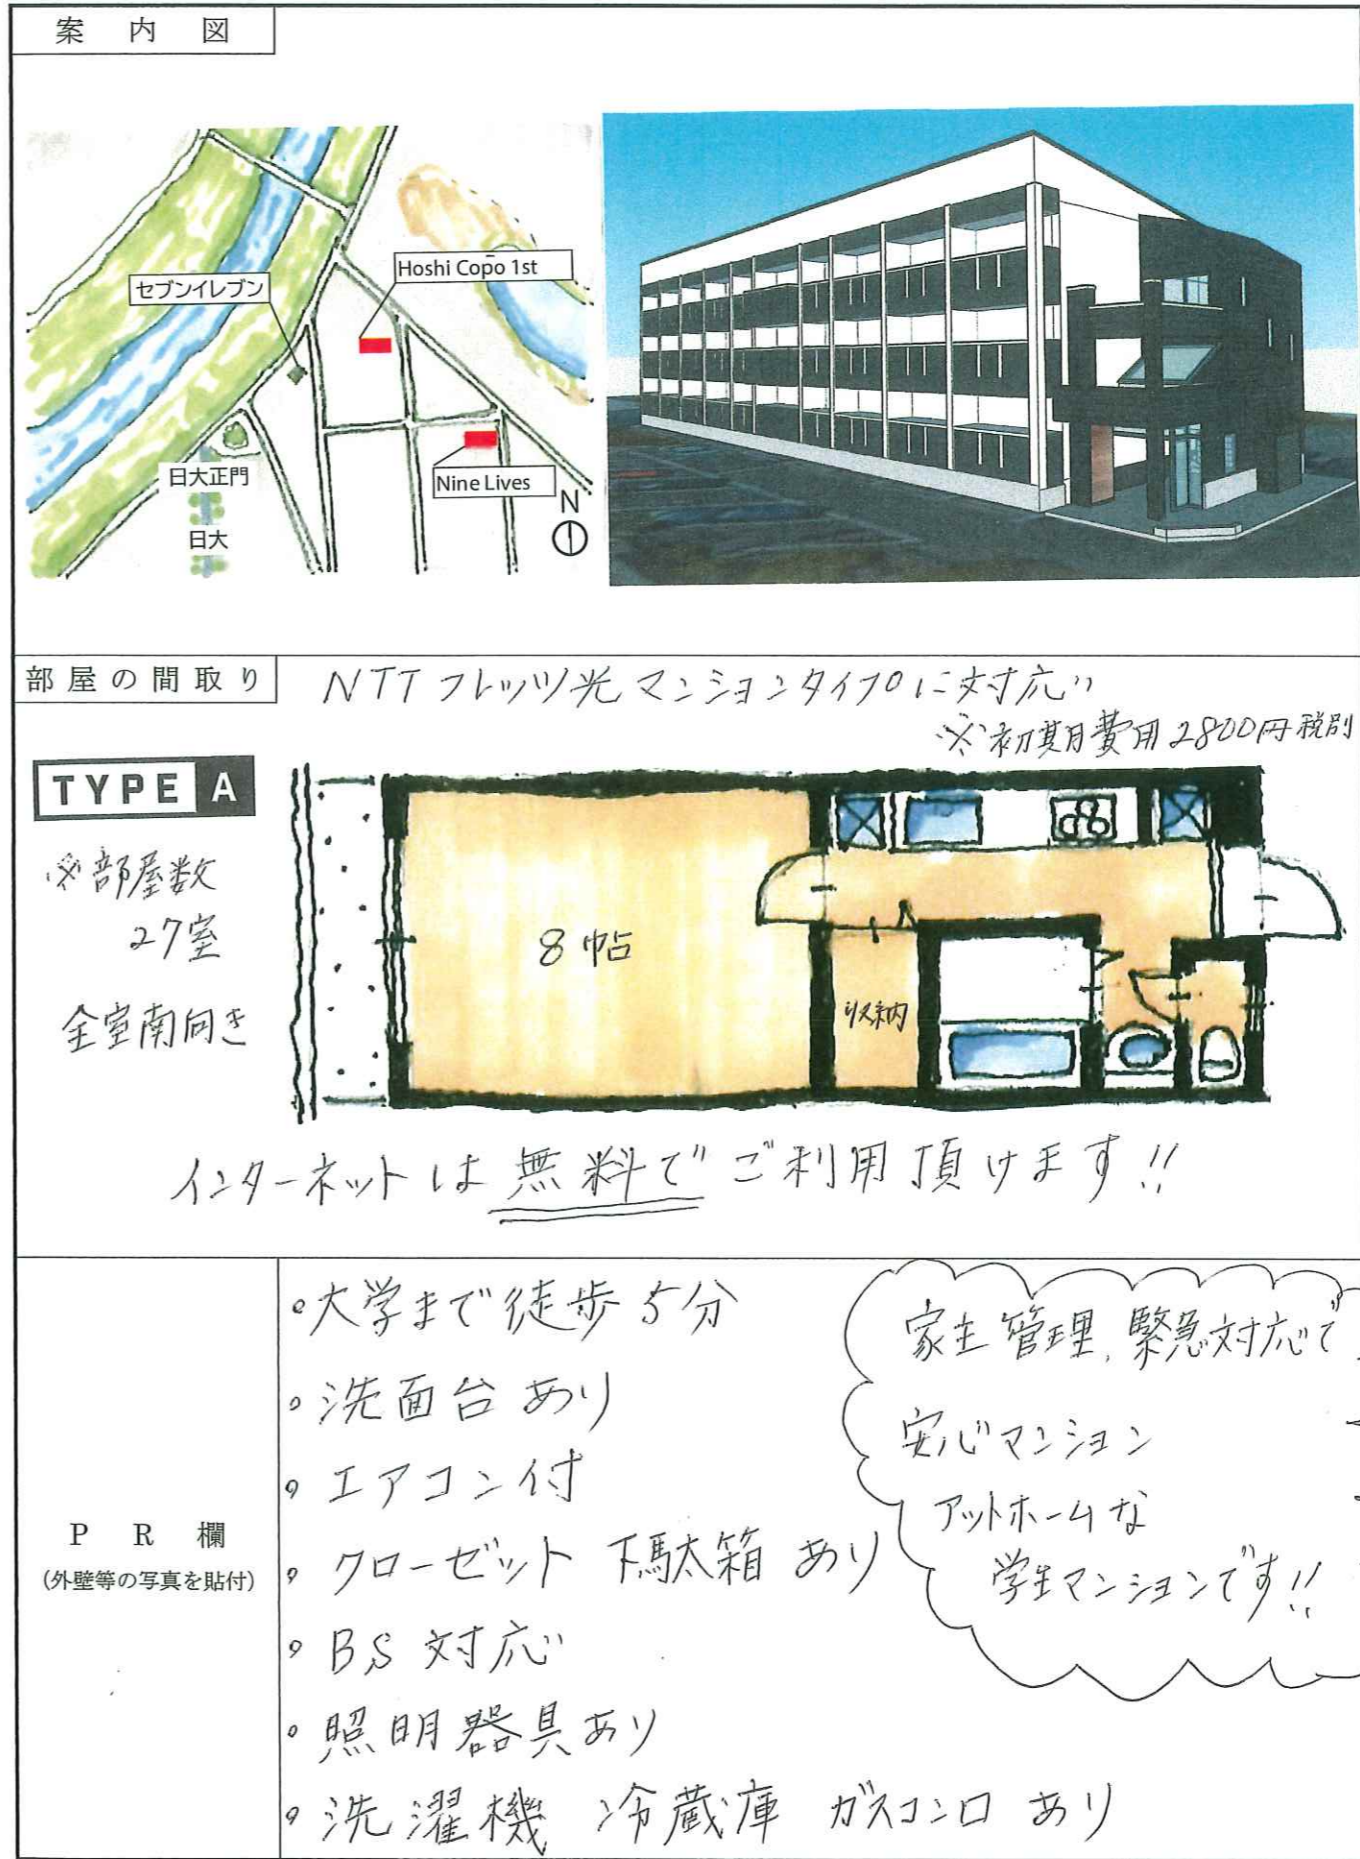 案内図
セブンイレブン
Hoshi Copō 1st
日大正門
日大
Nine Lives
N
部屋の間取り
NTTフレッツ光マンションタイプに対応
※初期費用2800円税別
TYPE A
※部屋数
27室
全室南向き
8帖
収納
インターネットは無料でご利用頂けます!!
PR欄
(外壁等の写真を貼付)
・大学まで徒歩5分
・洗面台あり
・エアコン付
・クローゼット 下駄箱 あり
・BS対応
・照明器具あり
・洗濯機 冷蔵庫 ガスコンロ あり
家主管理、緊急対応で
安心マンション
アットホームな
学生マンションです!!